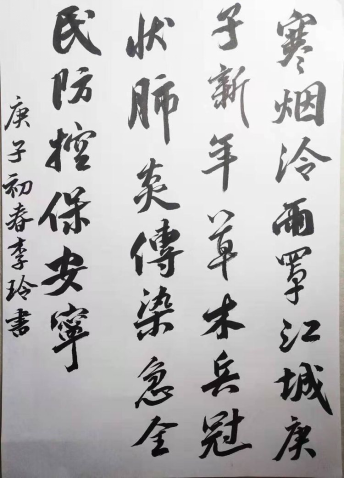 寒烟泠雨罩江城庚
子新年草木兵冠
状肺炎傳染急全
民防控保安寧
庚子初春李玲書